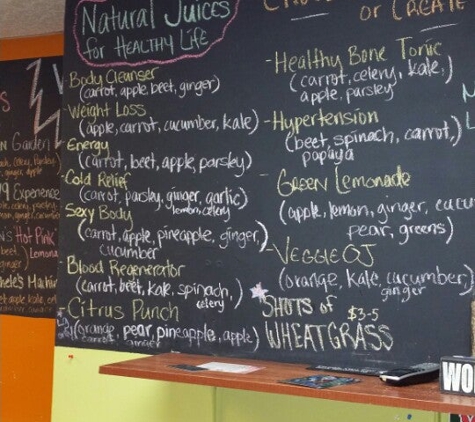 Natural Juices
for HEALTHY LIFE
or CREATE
Body Cleanser
(carrot, apple, beet, ginger)
Weight Loss
(apple, carrot, cucumber, kale)
Energy
(carrot, beet, apple, parsley)
Cold Relief
(carrot, parsley, ginger, garlic)
lemon, celery
Sexy Body
(carrot, apple, pineapple, ginger,)
cucumber
Blood Regenerator
(carrot, beet, kale, spinach,)
celery
Citrus Punch
(orange, pear, pineapple, apple)
ginger
-Healthy Bone Tonic
(carrot, celery, kale,)
apple, parsley
-Hypertension
(beet, spinach, carrot,)
papaya
GREEN Lemonade
(apple, lemon, ginger,
pear, greens)
-VEGGIE OJ
(orange, kale, cucumber)
ginger
SHOTS OF $3-5
WHEATGRASS
Garden
9 Experience
Hot Pink
WO